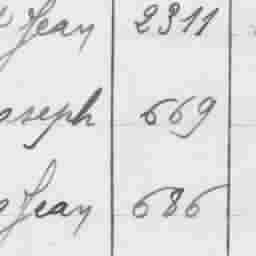 Jean 2311
oseph 669
Jean 686